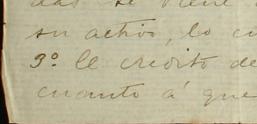 das se viene
su activo, lo cu
3º le credito de
cuanto á que